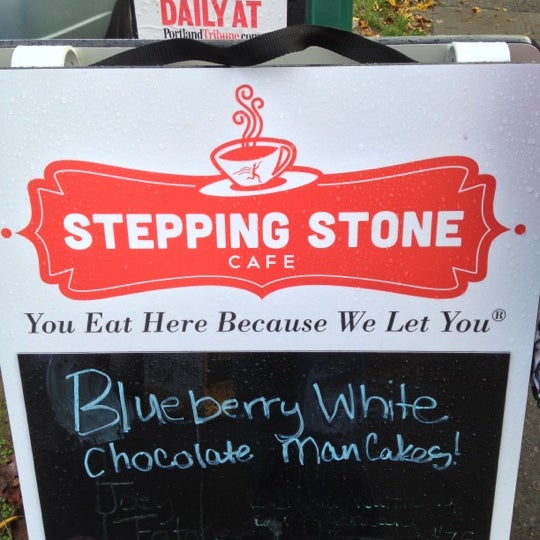 DAILY AT
PortlandTribune.com
STEPPING STONE
CAFE
You Eat Here Because We Let You®
Blueberry White
Chocolate Mancakes!
Joey